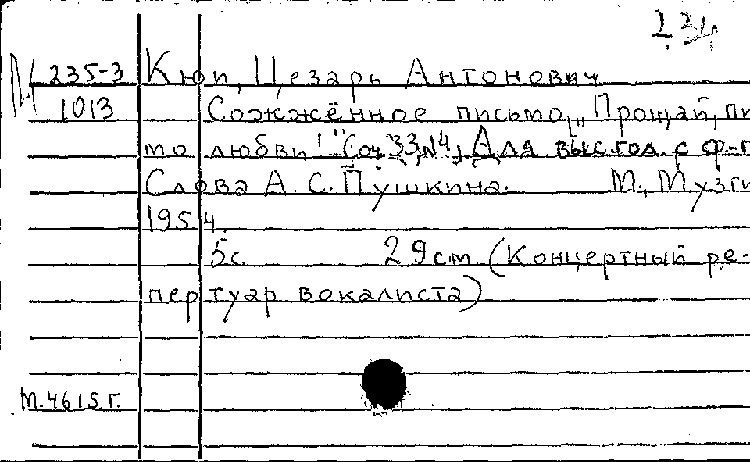 234
М 235-3 Кюи, Цезарь Антонович
1013 Сожжённое письмо. „Прощай, пи
мо любви!" Соч. 33, №4, Для выс. гол. с ф-п
Слова А. С. Пушкина. М., Музги
1954.
5с. 29см (Концертный ре-
пертуар вокалиста)
М.4615г.